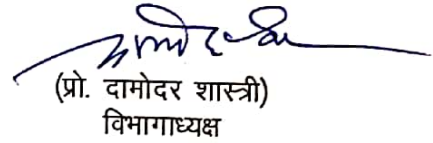 (प्रो. दामोदर शास्त्री)
विभागाध्यक्ष